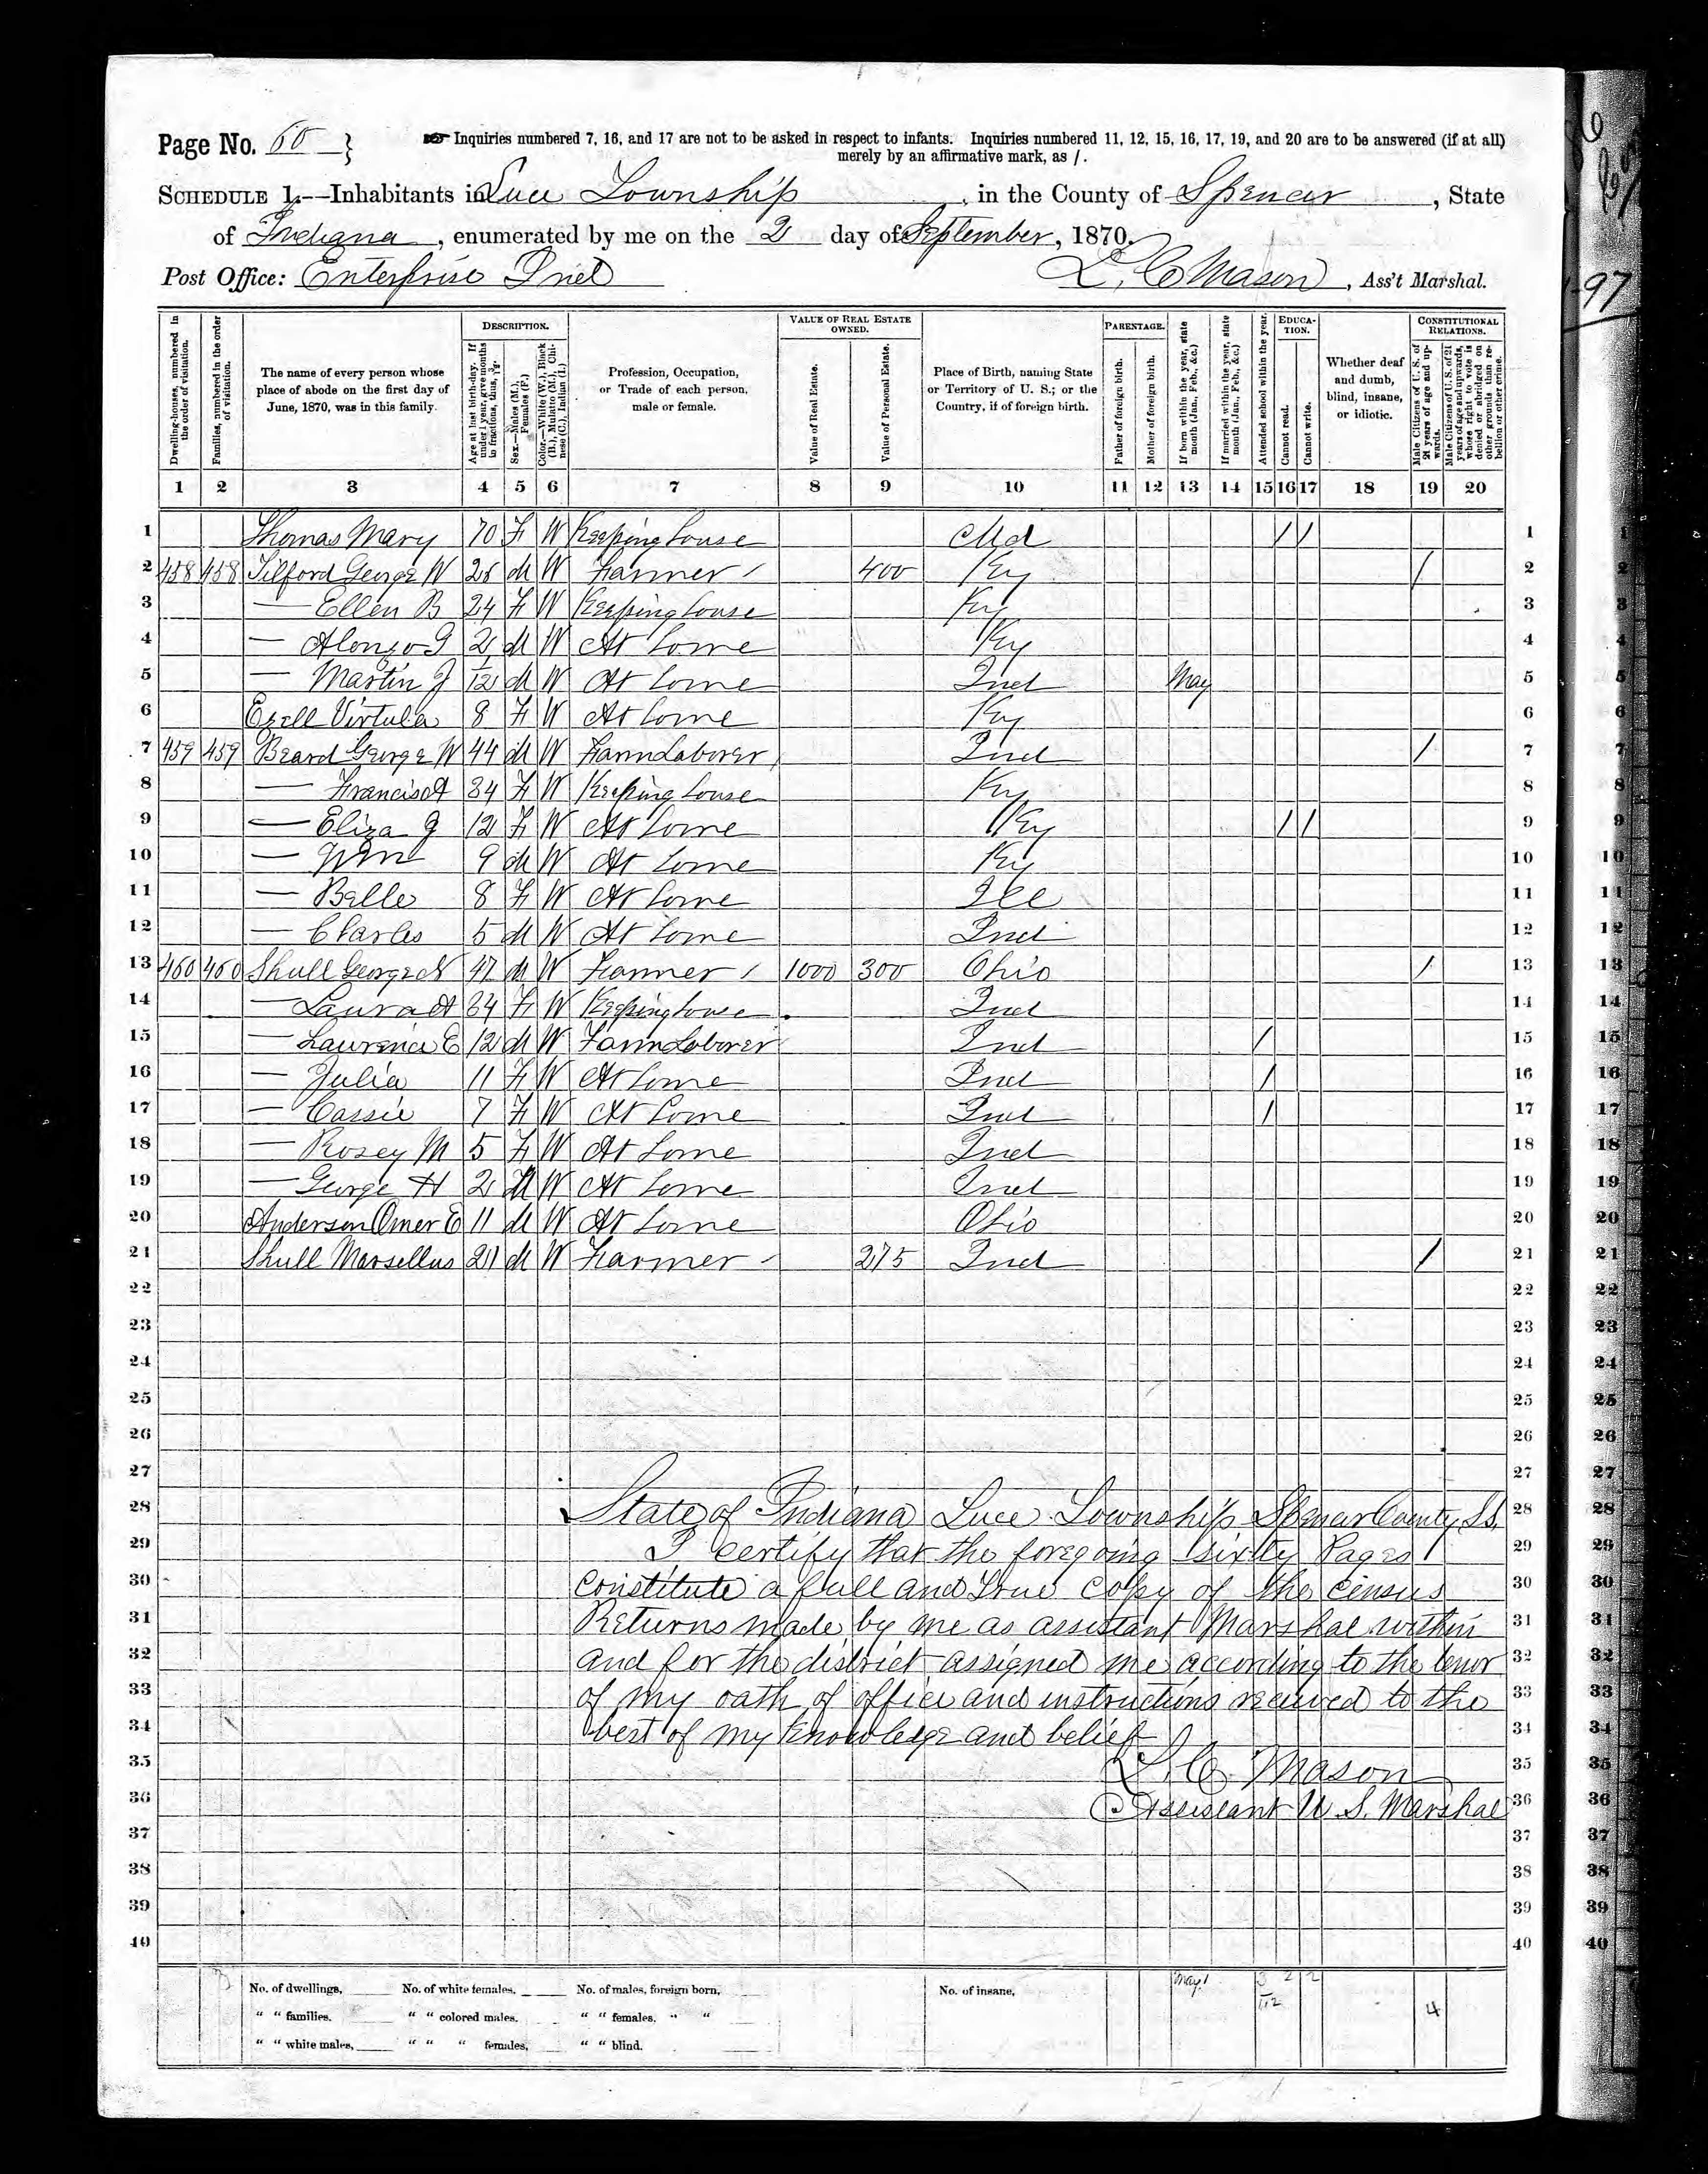 Page No. 60 }
☞ Inquiries numbered 7, 16, and 17 are not to be asked in respect to infants. Inquiries numbered 11, 12, 15, 16, 17, 19, and 20 are to be answered (if at all)
merely by an affirmative mark, as /.
SCHEDULE 1.—Inhabitants in Luce Township, in the County of Spencer, State
of Indiana, enumerated by me on the 2 day of September, 1870.
Post Office: Enterprise Ind L. C. Mason, Ass't Marshal.
97
Dwelling-houses, numbered in the order of visitation.
Families, numbered in the order of visitation.
The name of every person whose place of abode on the first day of June, 1870, was in this family.
DESCRIPTION.
Age at last birth-day. If under 1 year, give months in fractions, thus, 3/12.
Sex.—Males (M.), Females (F.)
Color.—White (W.), Black (B.), Mulatto (M.), Chinese (C.), Indian (I.)
Profession, Occupation, or Trade of each person, male or female.
VALUE OF REAL ESTATE OWNED.
Value of Real Estate.
Value of Personal Estate.
Place of Birth, naming State or Territory of U. S.; or the Country, if of foreign birth.
PARENTAGE.
Father of foreign birth.
Mother of foreign birth.
If born within the year, state month (Jan., Feb., &c.)
If married within the year, state month (Jan., Feb., &c.)
Attended school within the year.
EDUCATION.
Cannot read.
Cannot write.
Whether deaf and dumb, blind, insane, or idiotic.
CONSTITUTIONAL RELATIONS.
Male Citizens of U. S. of 21 years of age and upwards.
Male Citizens of U. S. of 21 years of age and upwards, whose right to vote is denied or abridged on other grounds than rebellion or other crime.
1 2 3 4 5 6 7 8 9 10 11 12 13 14 15 16 17 18 19 20
1 Thomas Mary 70 F W Keeping house Md / / 1
2 458 458 Tilford George W 28 M W Farmer 400 Ky / 2
3 — Ellen B 24 F W Keeping house Ky 3
4 — Alonzo G 2 M W At home Ky 4
5 — Martin J 1/12 M W At home Ind May 5
6 Ezell Virtula 8 F W At home Ky 6
7 459 459 Beard George W 44 M W Farm Laborer Ind / 7
8 — Francis A 34 F W Keeping house Ky 8
9 — Eliza J 12 F W At home Ky / / 9
10 — Wm 9 M W At home Ky 10
11 — Belle 8 F W At home Ill 11
12 — Charles 5 M W At home Ind 12
13 460 460 Shull George N 47 M W Farmer 1000 300 Ohio / 13
14 — Laura A 34 F W Keeping house Ind 14
15 — Laurence E 12 M W Farm Laborer Ind / 15
16 — Julia 11 F W At home Ind / 16
17 — Cassie 7 F W At home Ind / 17
18 — Rosey M 5 F W At home Ind 18
19 — George H 2 M W At home Ind 19
20 Anderson Omer E 11 M W At home Ohio 20
21 Shull Marsellus 21 M W Farmer 275 Ind / 21
22 22
23 23
24 24
25 25
26 26
27 27
28 State of Indiana Luce Township Spencer County S.S. 28
29 I certify that the foregoing sixty Pages 29
30 constitute a full and True Copy of the census 30
31 Returns made by me as assistant Marshal within 31
32 and for the district assigned me according to the tenor 32
33 of my oath of office and instructions received to the 33
34 best of my knowledge and belief 34
35 L. C. Mason 35
36 Assistant U. S. Marshal 36
37 37
38 38
39 39
40 40
No. of dwellings, No. of white females, No. of males, foreign born, No. of insane, May 1 3 2 2
" " families, " " colored males, " " females, " " 1/12 4
" " white males, " " " females, " " blind.